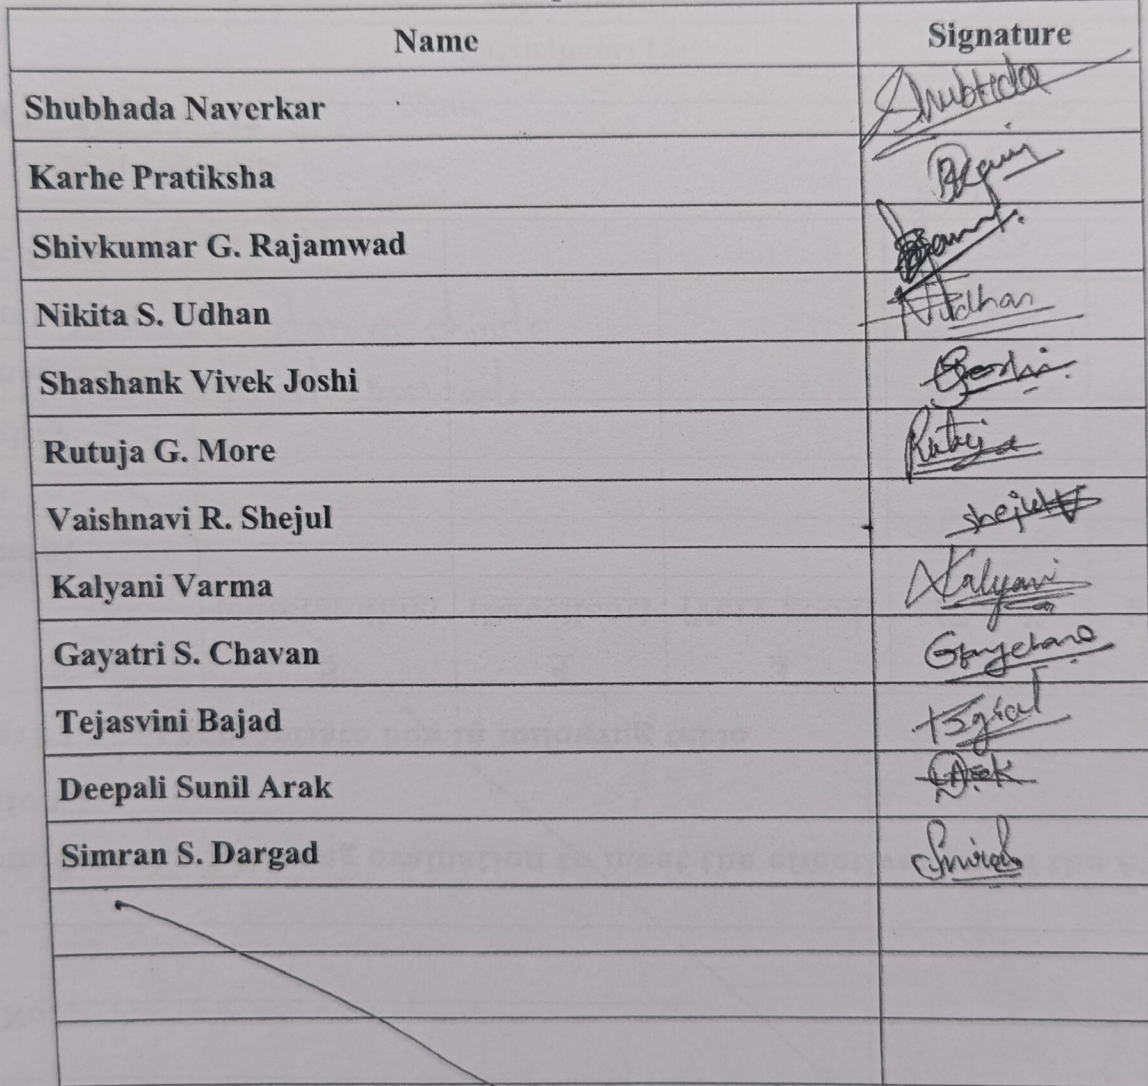 Name Signature
Shubhada Naverkar Shubhada
Karhe Pratiksha
Shivkumar G. Rajamwad
Nikita S. Udhan NUdhan
Shashank Vivek Joshi Joshi
Rutuja G. More Rutuja
Vaishnavi R. Shejul Shejul
Kalyani Varma Kalyani
Gayatri S. Chavan
Tejasvini Bajad
Deepali Sunil Arak
Simran S. Dargad